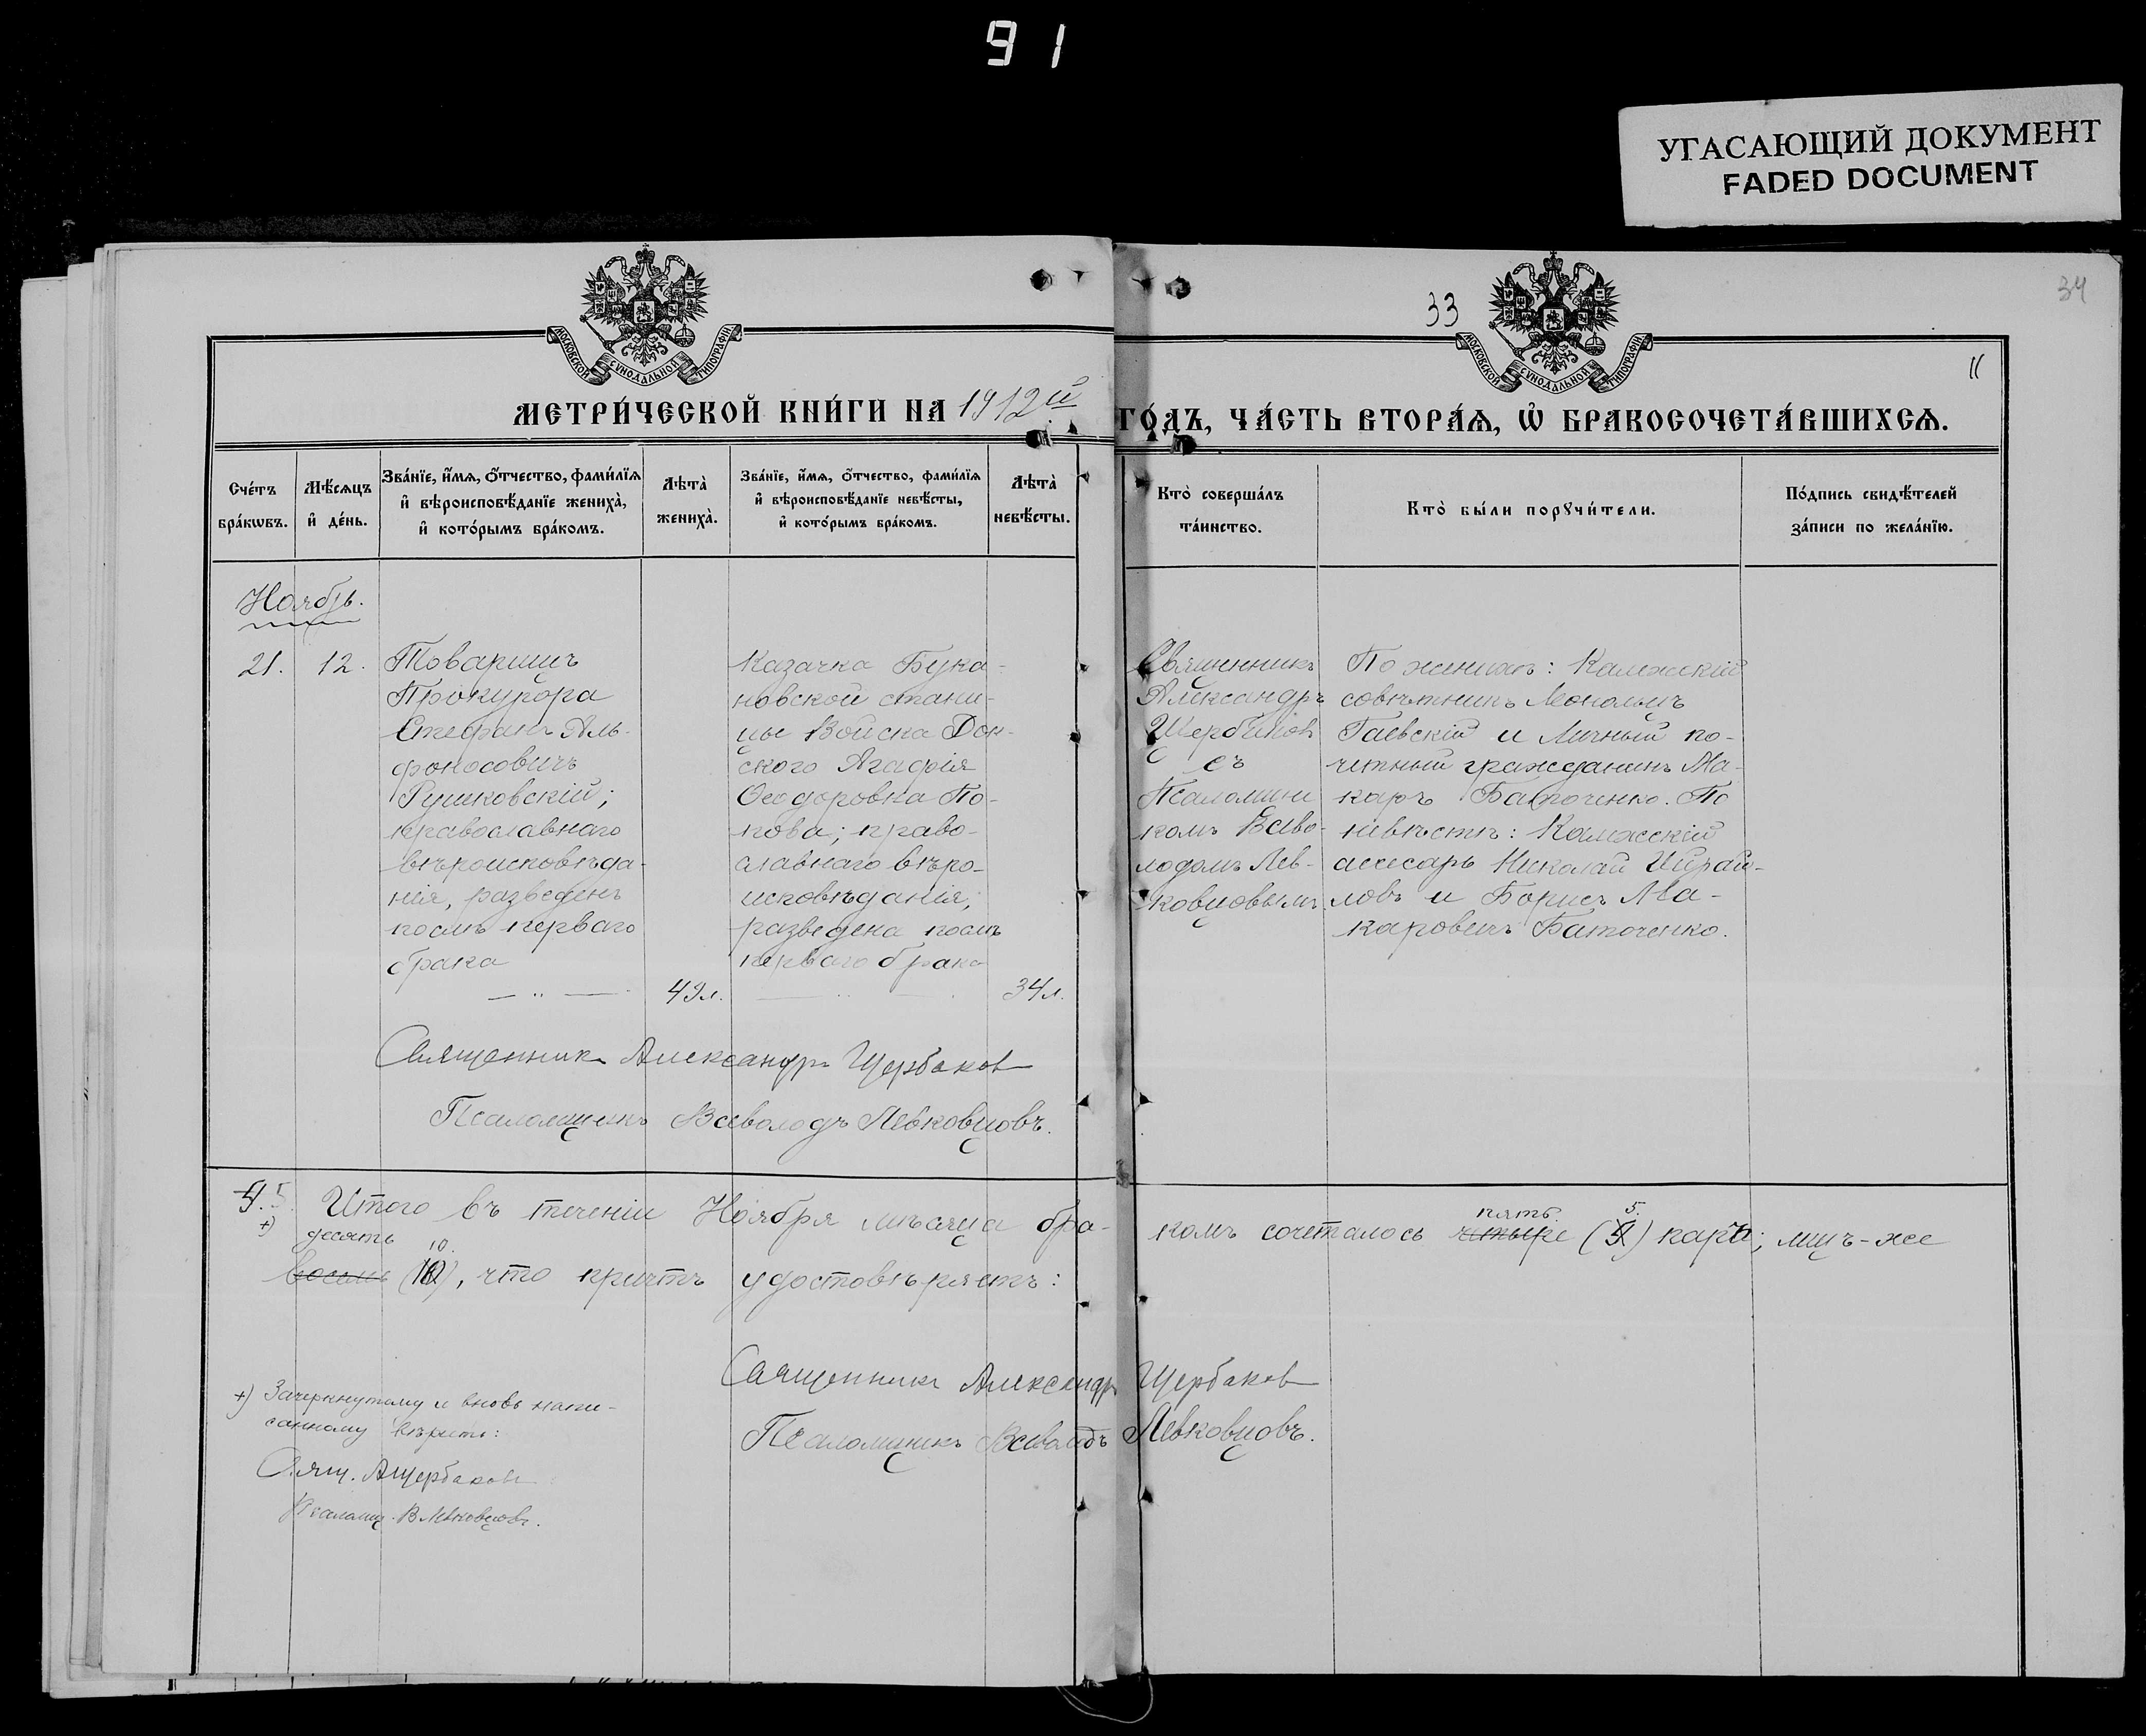 91
УГАСАЮЩИЙ ДОКУМЕНТ
FADED DOCUMENT
34
33
11
МОСКОВСКОЙ СУНОДАЛЬНОЙ ТИПОГРАФІИ
МОСКОВСКОЙ СУНОДАЛЬНОЙ ТИПОГРАФІИ
МЕТРИ́ЧЕСКОЙ КНИ́ГИ НА 1912й ГО́ДЪ, ЧА́СТЬ ВТОРА́Ѧ, Ѽ БРАКОСОЧЕТА́ВШИХСѦ.
Сче́тъ
бра́кѡвъ.
Мѣ́сяцъ
и҆ де́нь.
Зва́нїе, и҆́мѧ, ѻ҆́тчество, фами́лїѧ
и҆ вѣроисповѣ́данїе жениха̀,
и҆ кото́рымъ бра́комъ.
Лѣта̀
жениха̀.
Зва́нїе, и҆́мѧ, ѻ҆́тчество, фами́лїѧ
и҆ вѣроисповѣ́данїе невѣ́сты,
и҆ кото́рымъ бра́комъ.
Лѣта̀
невѣ́сты.
Кто̀ соверша́лъ
та́инство.
Кто̀ бы́ли порꙋчи́тели.
По́дпись свидѣ́телей
за́писи по жела́нїю.
Ноябрь.
21.
12.
Товарищъ
Прокурора
Стефанъ Аль-
фонсовичъ
Рушковскій;
православнаго
вѣроисповѣда-
нія, разведенъ
послѣ перваго
брака
49л.
Казачка Бука-
новской стани-
цы Войска Дон-
ского Агафія
Ѳеодоровна По-
пова; право-
славнаго вѣро-
исповѣданія,
разведена послѣ
перваго брака
34л.
Священникъ
Александръ
Щербаковъ
съ
Псаломщи
комъ Всево-
лодомъ Лев-
ковцовымъ.
По женихѣ: Коллежскій
совѣтникъ
Гаевскій и Личный по-
четный гражданинъ Ма-
каръ Баточенко. По
невѣстѣ: Коллежскій
ассесоръ Николай
ловъ и Борисъ Ма-
каровичъ Баточенко.
Священникъ Александръ Щербаковъ
Псаломщикъ Всеволодъ Левковцовъ.
4. 5
+)
Итого въ теченіи Ноября мѣсяца бра-комъ сочеталось четыре пять (4) 5. паръ; лицъ-же
восемь десять (10) 10., что причтъ удостовѣряетъ:
Священникъ Александръ Щербаковъ
Псаломщикъ Всеволодъ Левковцовъ.
+) Зачеркнутому и вновь напи-
санному вѣрить:
Свящ. АЩербаковъ
Псаломщ. ВЛевковцовъ.